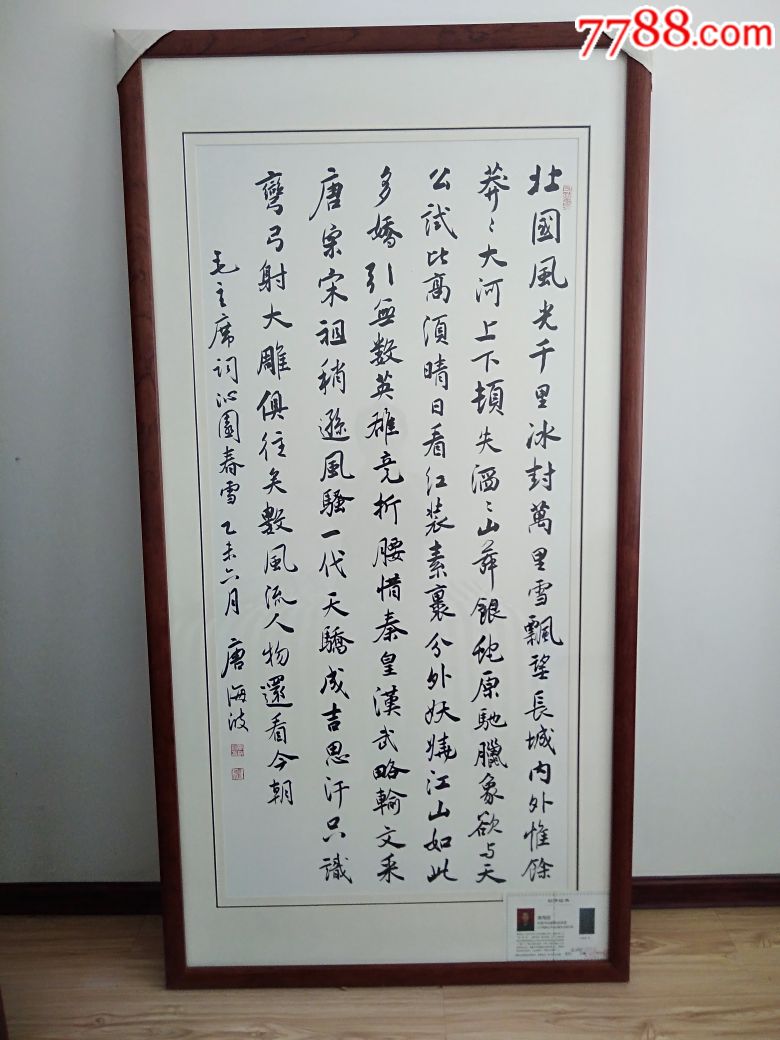 7788.com
北國風光千里冰封萬里雪飄望長城内外惟餘
莽〻大河上下頓失滔〻山舞銀蛇原馳臘象欲与天
公試比高須晴日看红装素裹分外妖嬈江山如此
多嬌引無数英雄竞折腰惜秦皇漢武略輸文采
唐宗宋祖稍遜風騷一代天驕成吉思汗只識
彎弓射大雕俱往矣數風流人物還看今朝
毛主席词沁園春雪乙未六月唐海波